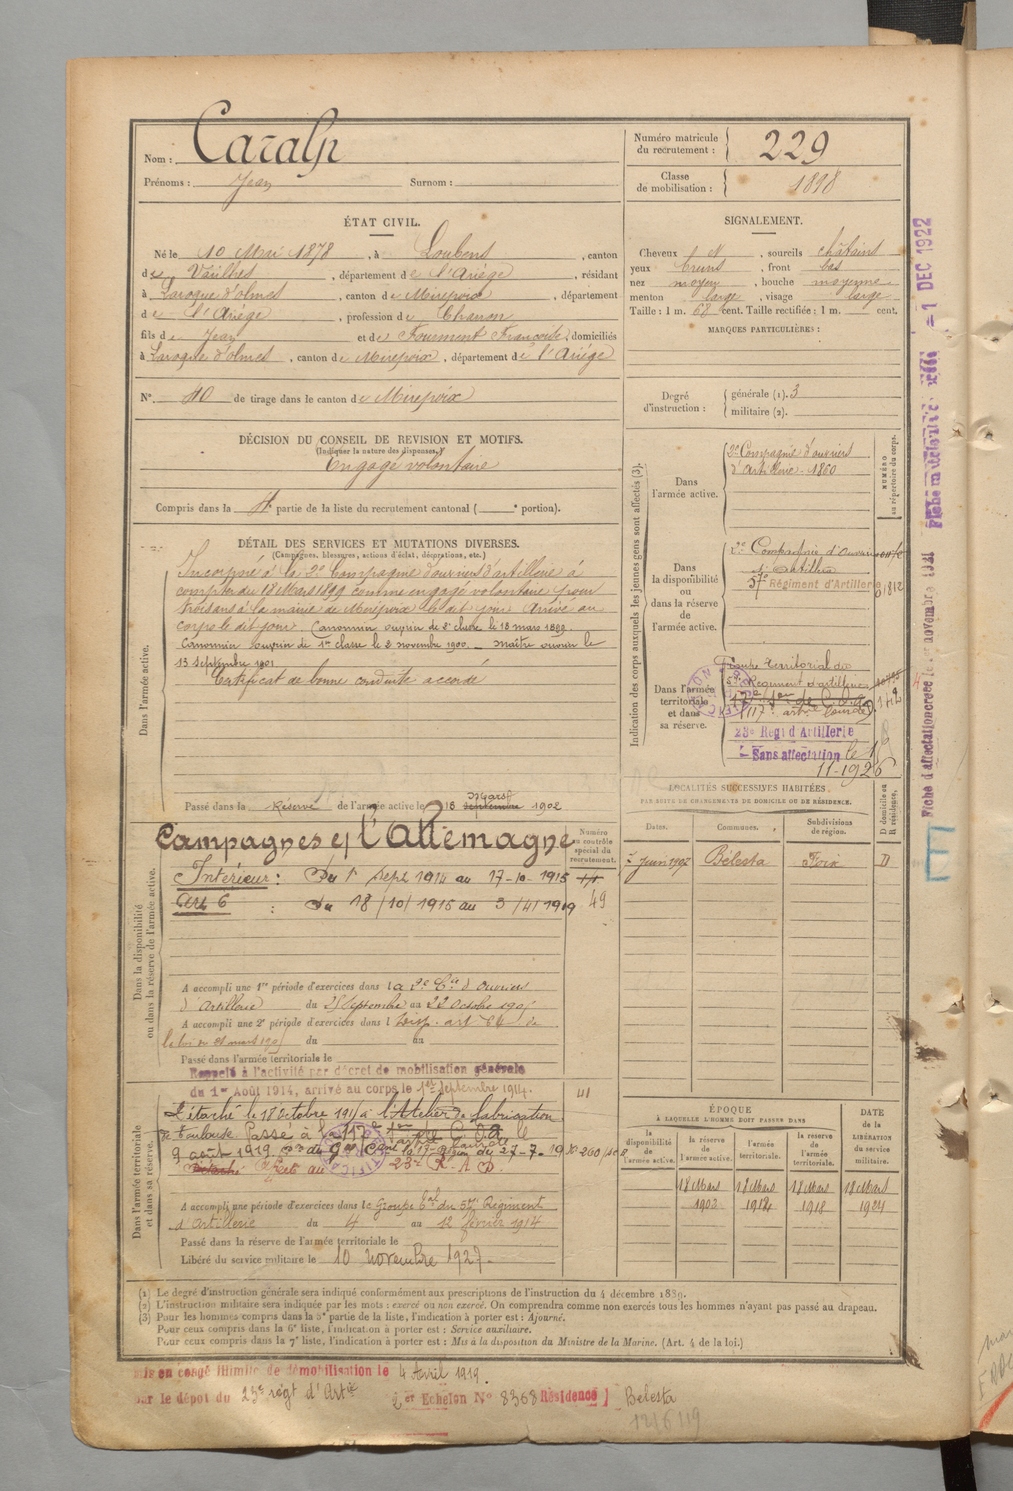 Nom : Caralp
Prénoms : Jean Surnom :
Numéro matricule du recrutement : 229
Classe de mobilisation : 1898
ÉTAT CIVIL.
Né le 10 Mai 1878, à Loubens, canton
de Varilhes, département de l'Ariège, résidant
à Laroque d'olmes, canton de Mirepoix, département
de l'Ariège, profession de Charron
fils de Jean et de Fourment Françoise, domiciliés
à Laroque d'olmes, canton de Mirepoix, département de l'Ariège
N° 40 de tirage dans le canton de Mirepoix
SIGNALEMENT.
Cheveux N, sourcils châtains
yeux bruns, front bas
nez moyen, bouche moyenne
menton large, visage large
Taille : 1 m. 68 cent. Taille rectifiée : 1 m. cent.
MARQUES PARTICULIÈRES :
Degré d'instruction : générale (1). 3
militaire (2).
DÉCISION DU CONSEIL DE REVISION ET MOTIFS.
(Indiquer la nature des dispenses.)
Engagé volontaire
Compris dans la 4e partie de la liste du recrutement cantonal ( e portion).
DÉTAIL DES SERVICES ET MUTATIONS DIVERSES.
(Campagnes, blessures, actions d'éclat, décorations, etc.)
Dans l'armée active.
Incorporé à la 2e Compagnie d'ouvriers d'artillerie à
compter du 18 Mars 1899 comme engagé volontaire pour
trois ans à la mairie de Mirepoix le dit jour. Arrivé au
corps le dit jour. Canonnier ouvrier de 2e classe le 18 mars 1899.
Canonnier ouvrier de 1re classe le 2 novembre 1900. — Maître ouvrier le
13 septembre 1901
Certificat de bonne conduite accordé
Passé dans la Réserve de l'armée active le 18 septembre Mars 1902
Indication des corps auxquels les jeunes gens sont affectés (3).
NUMÉRO au répertoire du corps.
Dans l'armée active.
2e Compagnie d'ouvriers
d'Artillerie - 1860
Dans la disponibilité ou dans la réserve de l'armée active.
2e Compagnie d'Ouvriers
d'Artillerie
57e Régiment d'Artillerie 01812
Dans l'armée territoriale et dans sa réserve.
Groupe territorial du
57e Régiment d'artillerie
117e art lourde
23e Régt d'Artillerie
Sans affectation le 1
11-1926
LOCALITÉS SUCCESSIVES HABITÉES
PAR SUITE DE CHANGEMENTS DE DOMICILE OU DE RÉSIDENCE.
Dates. Communes. Subdivisions de région. D domicile ou R résidence.
juin 1907 Bélesta Foix D
Dans la disponibilité ou dans la réserve de l'armée active.
Campagnes c/ l'Allemagne
Numéro au contrôle spécial du recrutement.
Intérieur : Du 1er Sept 1914 au 17-10-1915
Art 6 : Du 18/10/1915 au 3/4/1919
49
A accompli une 1re période d'exercices dans la 2e Cie d'Ouvriers
d'Artillerie du 25 Septembre au 22 Octobre
A accompli une 2e période d'exercices dans l
la loi du 21 mars 1905 du au
Passé dans l'armée territoriale le
Rappelé à l'activité par décret de mobilisation générale
du 1er Août 1914, arrivé au corps le 1er Septembre 1914.
Dans l'armée territoriale et dans sa réserve.
41
Détaché le 18 Octobre 191 à l'Atelier de fabrication
de Toulouse Passé à la 117e
9 août 1919
A accompli une période d'exercices dans le Groupe tal du 57e Régiment
d'Artillerie du 4 au 12 février 1914
Passé dans la réserve de l'armée territoriale le
Libéré du service militaire le 10 novembre 1927.
ÉPOQUE
À LAQUELLE L'HOMME DOIT PASSER DANS
DATE de la LIBÉRATION du service militaire.
la disponibilité de l'armée active. la réserve de l'armée active. l'armée territoriale. la réserve de l'armée territoriale.
18 Mars 18 Mars 18 Mars 18 Mars
1902 1912 1918 1924
(1) Le degré d'instruction générale sera indiqué conformément aux prescriptions de l'instruction du 4 décembre 1889.
(2) L'instruction militaire sera indiquée par les mots : exercé ou non exercé. On comprendra comme non exercés tous les hommes n'ayant pas passé au drapeau.
(3) Pour les hommes compris dans la 5e partie de la liste, l'indication à porter est : Ajourné.
Pour ceux compris dans la 6e liste, l'indication à porter est : Service auxiliaire.
Pour ceux compris dans la 7e liste, l'indication à porter est : Mis à la disposition du Ministre de la Marine. (Art. 4 de la loi.)
Mis en congé illimité de démobilisation le 4 Avril 1919.
par le dépot du 23e régt d'Artie
2er Echelon N° 8368 Résidence Belesta
1 DEC 1922